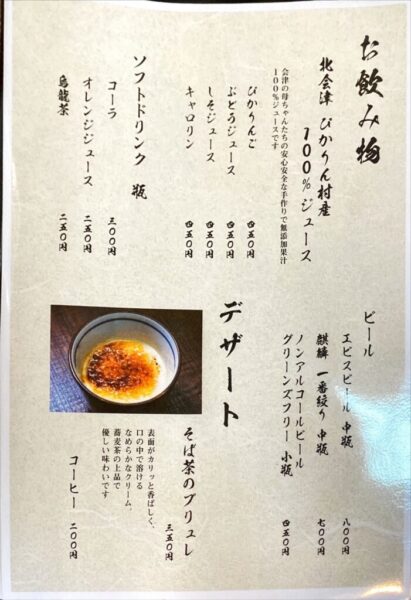 お飲み物
北会津 ぴかりん村産
100%ジュース
会津の母ちゃんたちの安心安全な手作りで無添加果汁
100%ジュースです
ぴかりんご 四五〇円
ぶどうジュース 四五〇円
しそジュース 四五〇円
キャロリン 四五〇円
ソフトドリンク 瓶
コーラ 三〇〇円
オレンジジュース 二五〇円
烏龍茶 二五〇円
ビール
エビスビール 中瓶 八〇〇円
麒麟 一番絞り 中瓶 七〇〇円
ノンアルコールビール
グリーンズフリー 小瓶 四五〇円
デザート
そば茶のブリュレ
三五〇円
表面がカリッと香ばしく、
口の中で溶ける
なめらかなクリーム、
蕎麦茶の上品で
優しい味わいです
コーヒー 二〇〇円